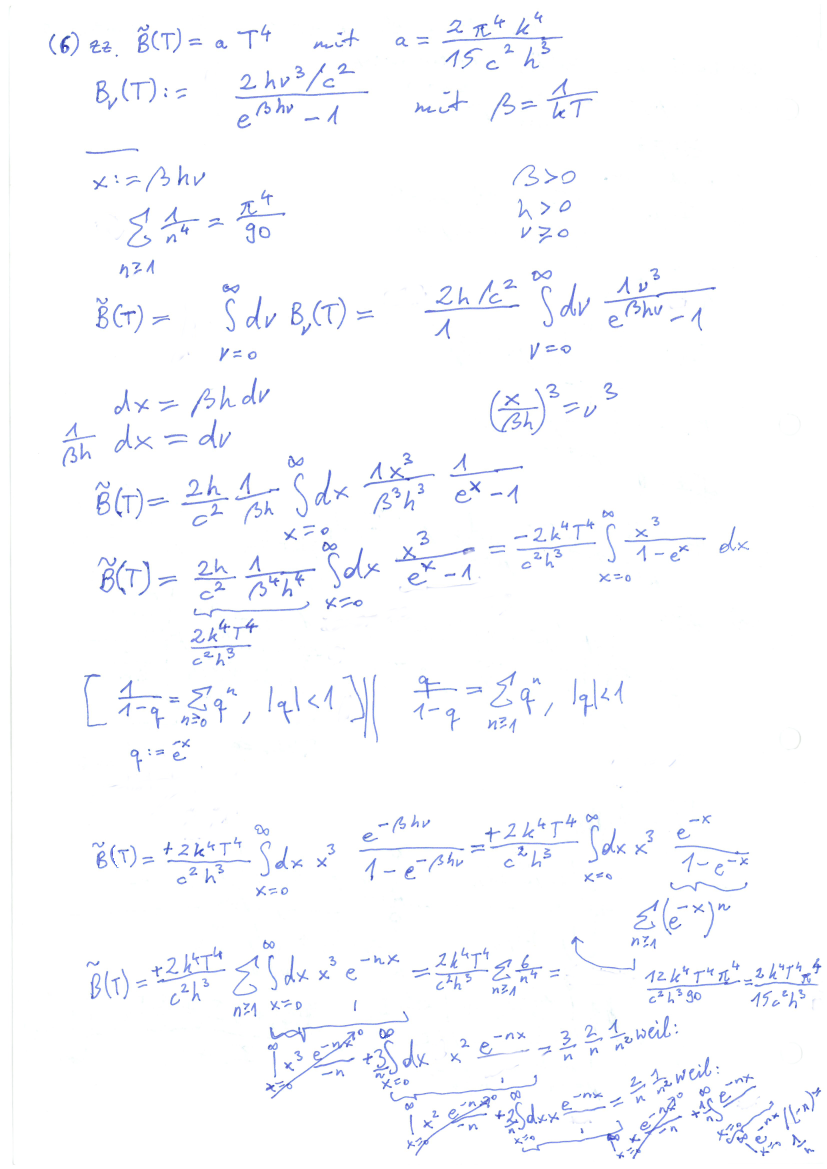 (6) zz. B̃(T) = a T⁴ mit a = 2π⁴k⁴ / 15c²h³
B_ν(T) := (2hν³/c²) / (e^{βhν} - 1) mit β = 1/kT
x := βhν β>0
∑_{n≥1} 1/n⁴ = π⁴/90 h>0
ν≥0
B̃(T) = ∫_{ν=0}^∞ dν B_ν(T) = (2h/c²)/1 ∫_{ν=0}^∞ dν 1ν³/(e^{βhν} - 1)
dx = βh dν (x/βh)³ = ν³
1/βh dx = dν
B̃(T) = 2h/c² 1/βh ∫_{x=0}^∞ dx 1x³/β³h³ 1/(e^x - 1)
B̃(T) = 2h/c² 1/β⁴h⁴ ∫_{x=0}^∞ dx x³/(e^x - 1) = -2k⁴T⁴/c²h³ ∫_{x=0}^∞ x³/(1 - e^x) dx
2k⁴T⁴/c²h³
[ 1/(1-q) = ∑_{n≥0} qⁿ, |q|<1 ] || q/(1-q) = ∑_{n≥1} qⁿ, |q|<1
q := e^{-x}
B̃(T) = +2k⁴T⁴/c²h³ ∫_{x=0}^∞ dx x³ e^{-βhν}/(1 - e^{-βhν}) = +2k⁴T⁴/c²h³ ∫_{x=0}^∞ dx x³ e^{-x}/(1 - e^{-x})
∑_{n≥1} (e^{-x})ⁿ
B̃(T) = +2k⁴T⁴/c²h³ ∑_{n≥1} ∫_{x=0}^∞ dx x³ e^{-nx} = 2k⁴T⁴/c²h³ ∑_{n≥1} 6/n⁴ = 12k⁴T⁴π⁴/c²h³90 = 2k⁴T⁴π⁴/15c²h³
|_{x=0}^∞ x³ e^{-nx}/-n →0 + 3/n ∫_{x=0}^∞ dx x² e^{-nx} = 3/n 2/n 1/n² weil:
|_{x=0}^∞ x² e^{-nx}/-n →0 + 2/n ∫_{x=0}^∞ dx x e^{-nx} = 2/n 1/n² weil:
|_{x=0}^∞ x e^{-nx}/-n →0